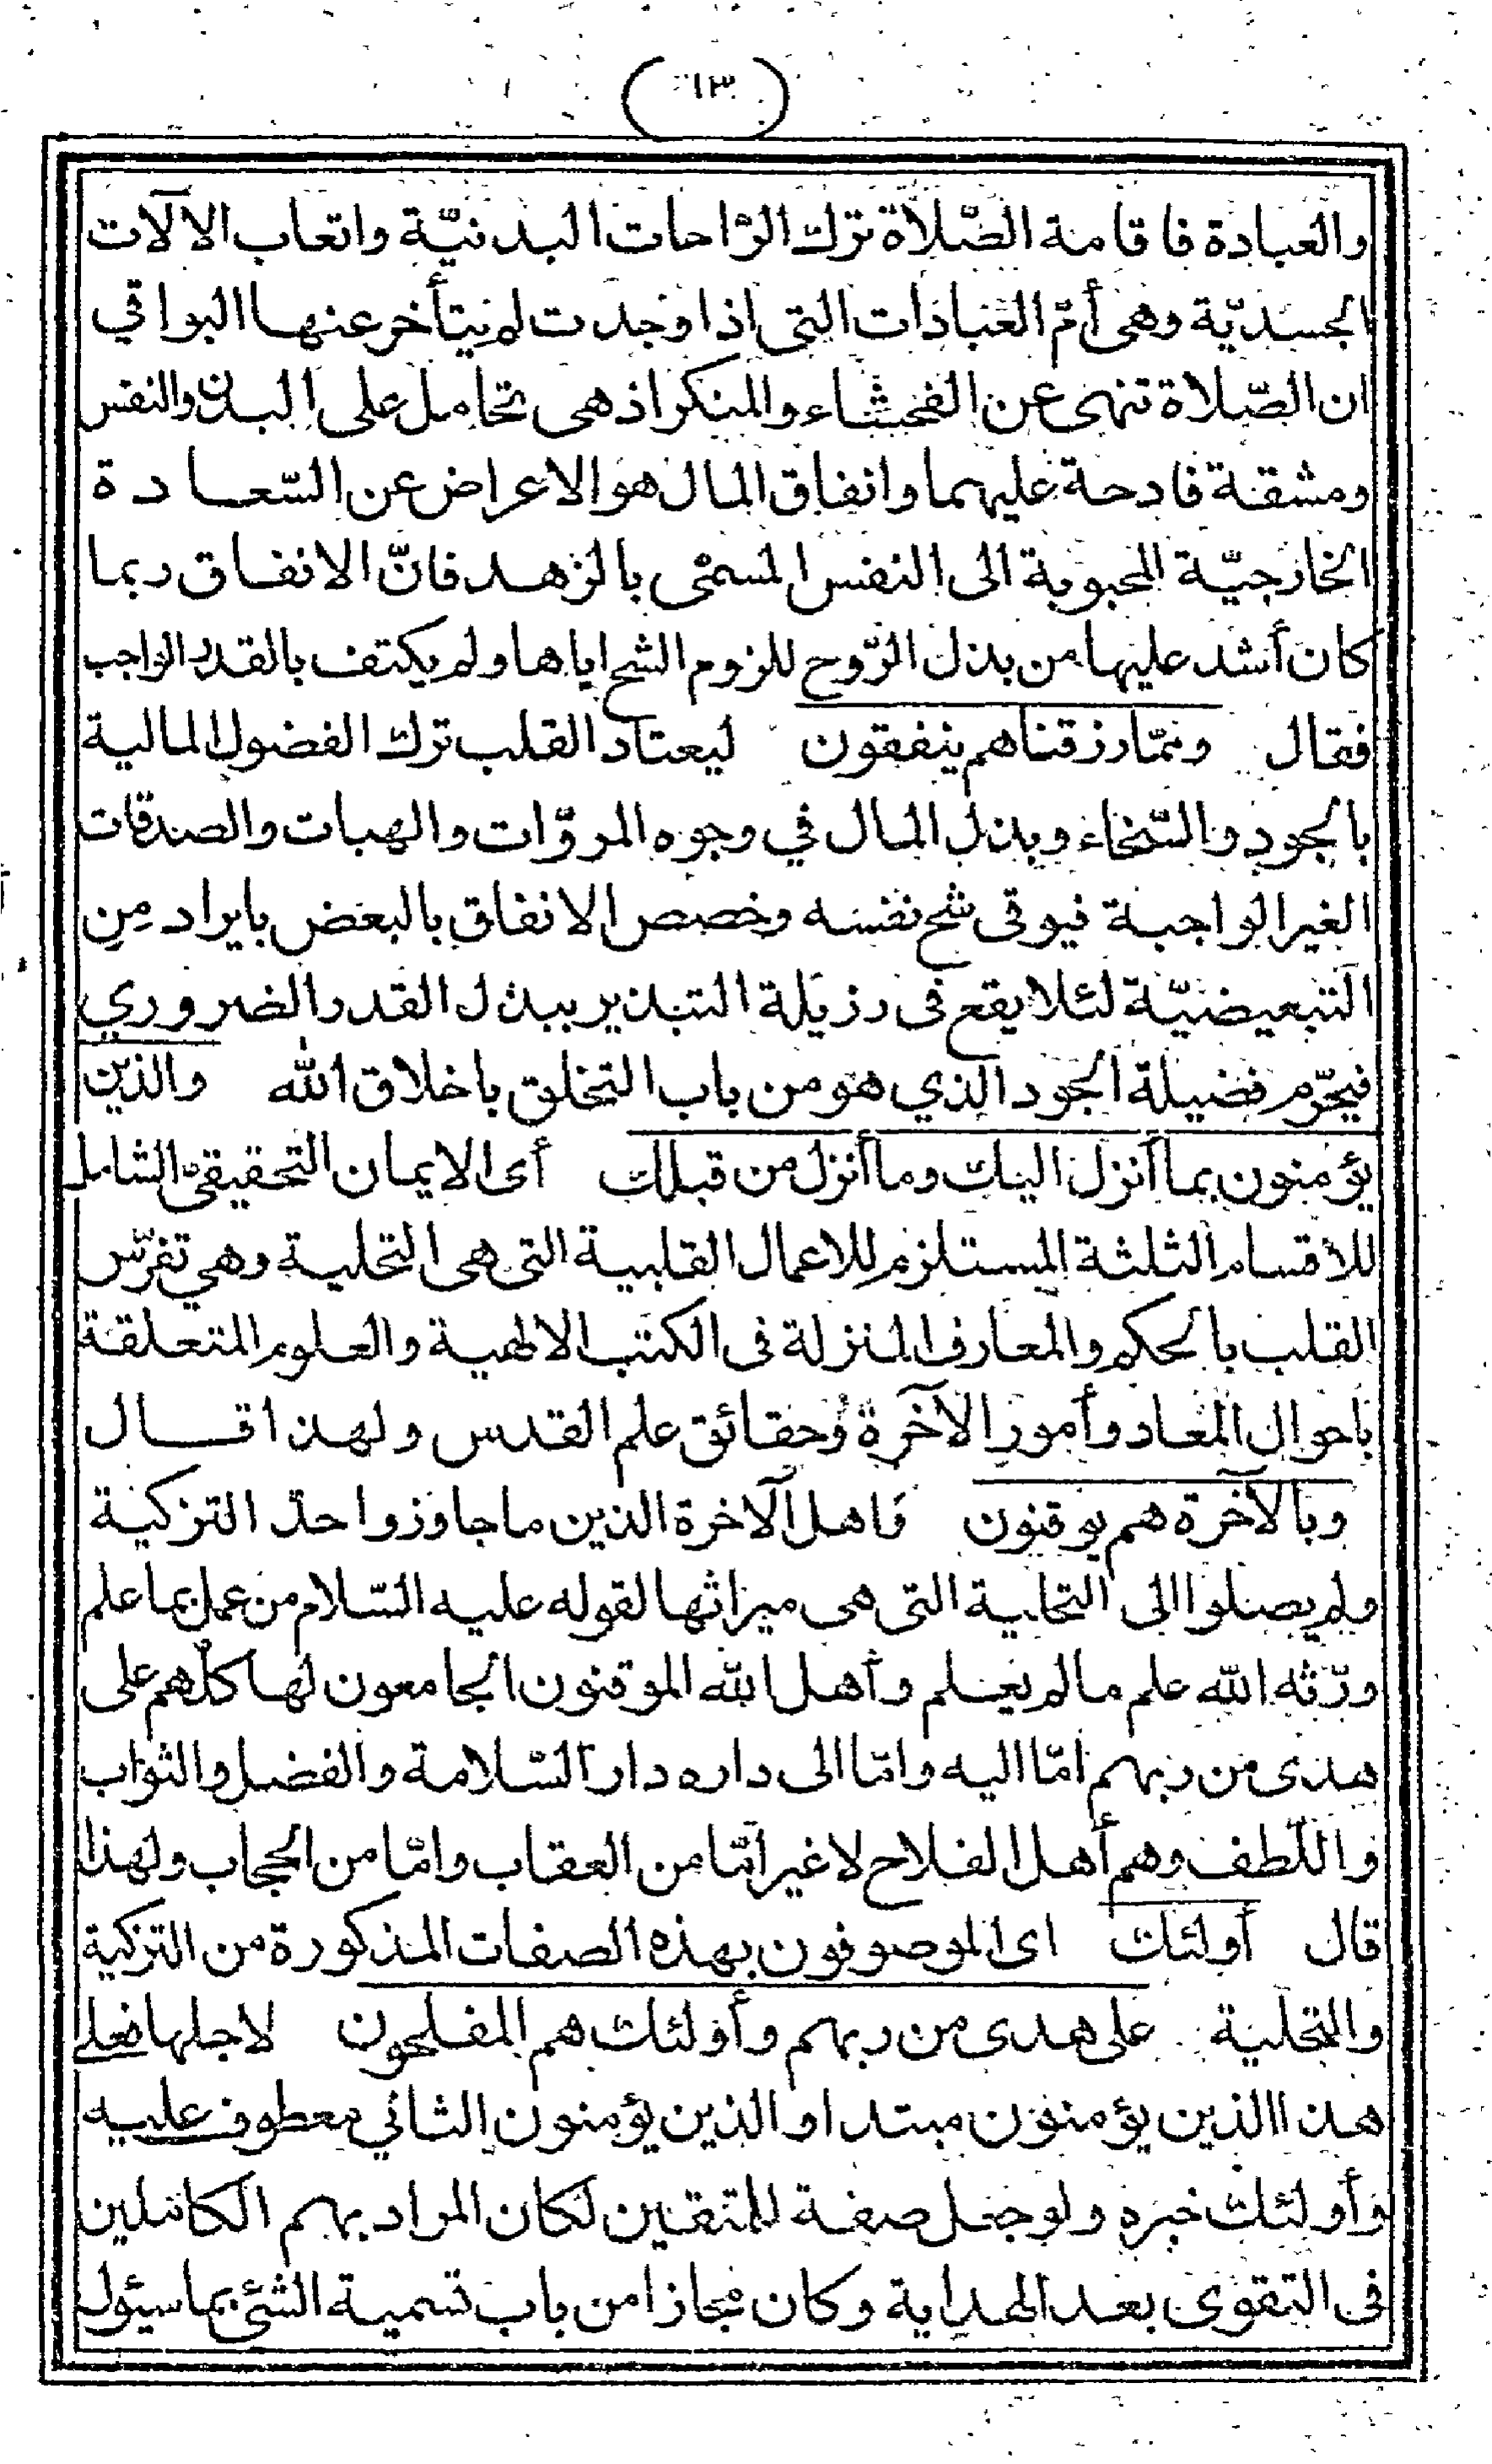 (١٣)
والعبادة فاقامة الصّلاة ترك الرّاحات البدنيّة واتعاب الآلات
الجسديّة وهي أمّ العبادات التي اذا وجدت لم يتأخر عنها البواقي
ان الصّلاة تنهى عن الفحشاء والمنكر اذ هى تحامل على البدن والنفس
ومشقة فادحة عليهما وانفاق المال هو الاعراض عن السّعادة
الخارجيّة المحبوبة الى النفس المسمّى بالزهد فانّ الانفاق ربما
كان أشد عليها من بذل الرّوح للزوم الشح اياها ولم يكتف بالقدر الواجب
فقال وممّا رزقناهم ينفقون ليعتاد القلب ترك الفضول المالية
بالجود والسّخاء وبذل المال في وجوه المروّات والهبات والصدقات
الغير الواجبة فيوقى شح نفسه وخصص الانفاق بالبعض بايراد من
التبعيضيّة لئلا يقع فى رزيلة التبذير ببذل القدر الضروري
فيحرّم فضيلة الجود الذي هو من باب التخلق باخلاق الله والذين
يؤمنون بما أنزل اليك وما أنزل من قبلك أى الايمان التحقيقيّ الشامل
للاقسام الثلثة المستلزم للاعمال القلبية التى هى التحلية وهي تفرّس
القلب بالحكم والمعارف المنزلة فى الكتب الالهية والعلوم المتعلقة
باحوال المعاد وأمور الآخرة وحقائق علم القدس ولهذا قال
وبالآخرة هم يوقنون فاهل الآخرة الذين ما جاوزوا حدّ التزكية
ولم يصلوا الى التحلية التى هى ميراثها لقوله عليه السّلام من عمل بما علم
ورّثه الله علم ما لم يعلم وأهل الله الموقنون الجامعون لها كلّهم على
هدى من ربهم امّا اليه وامّا الى داره دار السّلامة والفضل والثواب
واللّطف وهم أهل الفلاح لا غير امّا من العقاب وامّا من الحجاب ولهذا
قال أولئك اى الموصوفون بهذه الصفات المذكورة من التزكية
والتحلية على هدى من ربهم وأولئك هم المفلحون لاجلها فعلى
هذا الذين يؤمنون مبتدا والذين يؤمنون الثاني معطوف عليه
وأولئك خبره ولو جعل صفة للمتقين لكان المراد بهم الكاملين
فى التقوى بعد الهداية وكان مجازا من باب تسمية الشئ بما سيئول